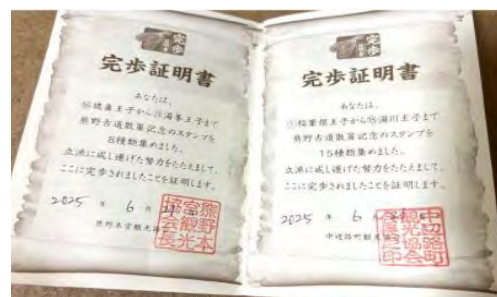 完歩
完歩証明書
あなたは、
猪鼻王子から湯峯王子まで
熊野古道散策記念のスタンプを
8種類集めました。
立派に成し遂げた努力をたたえまして、
ここに完歩されましたことを証明します。
2025年6月
熊野本宮観光協会
熊野本宮観光協会長
完歩
完歩証明書
あなたは、
稲葉根王子から湯川王子まで
熊野古道散策記念のスタンプを
15種類集めました。
立派に成し遂げた努力をたたえまして、
ここに完歩されましたことを証明します。
2025年6月
中辺路町観光協会
中辺路町観光協会